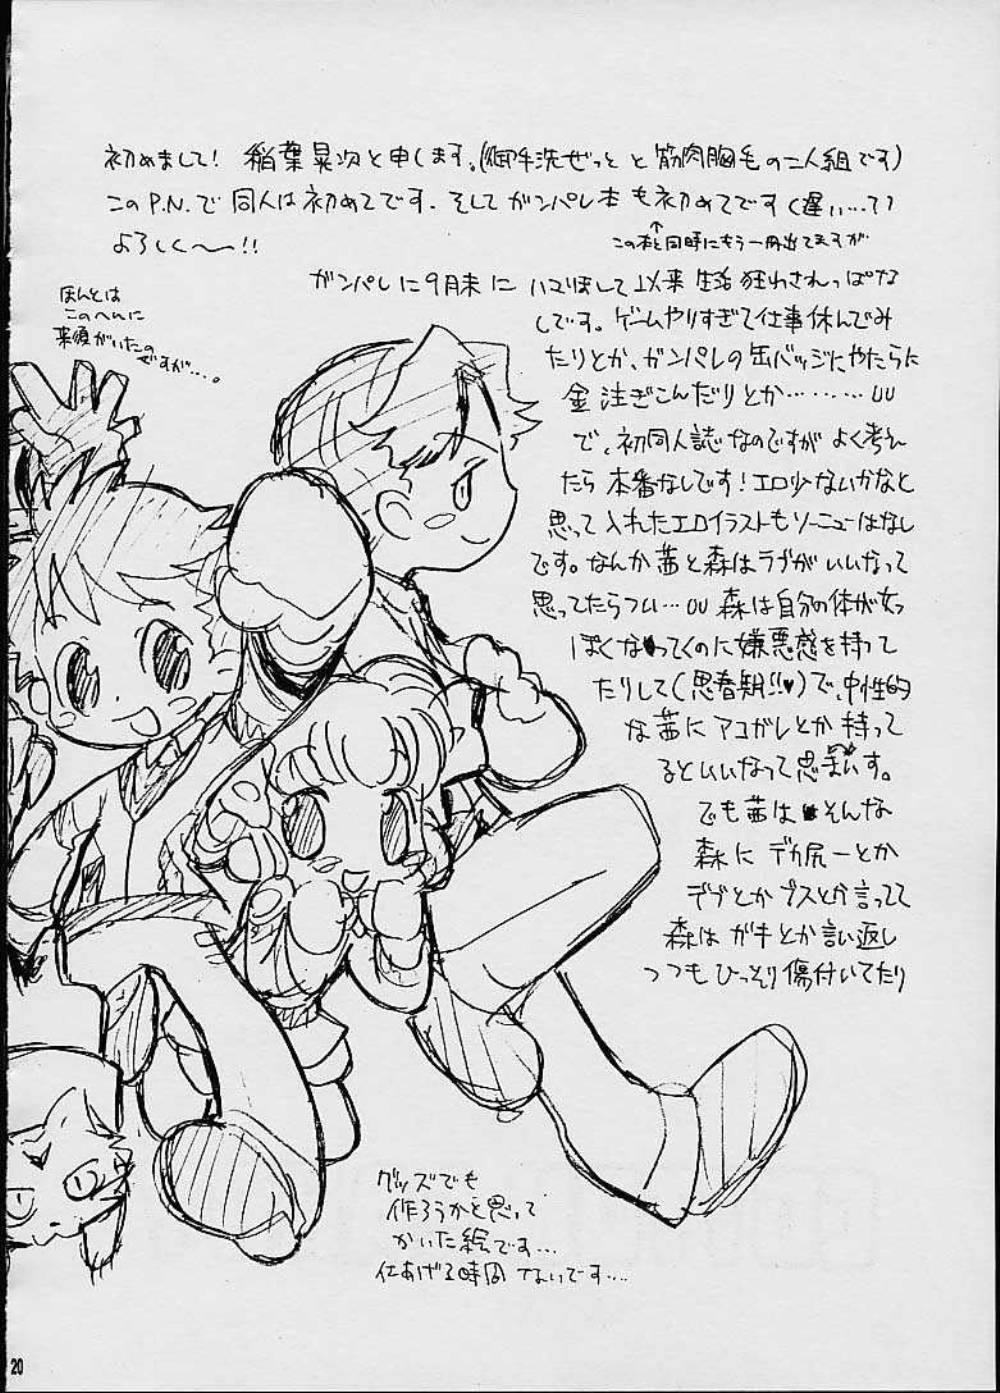 初めまして! 稲葉晃次と申します。(御手洗ぜっと と 筋肉胸毛の二人組です)
このP.N.で同人は初めてです. そしてガンパレ本も初めてです(遅い…?)
↑
この本と同時にもう一冊出てますが
よろしく〜!!
ほんとは
このへんに
来須がいたの
ですが…。
ガンパレに9月末にハマりまして以来 生活狂わされっぱな
しです。ゲームやりすぎて仕事休んでみ
たりとか、ガンパレの缶バッジにやたらに
金注ぎこんだりとか………UU
で、初同人誌なのですが よく考え
たら 本番なしです! エロ少ないかなと
思って入れたエロイラストもソーニューはなし
です。なんか茜と森はラブがいいなって
思ってたらつい…UU 森は自分の体が女っ
ぽくなってくのに嫌悪感を持って
たりして(思春期!!♥)で、中性的
な茜にアコガレとか持って
るといいなって思います。
でも茜はそんな
森に デカ尻ーとか
デブとかブスとか言ってて
森は ガキとか言い返し
つつも ひっそり傷付いてたり
グッズでも
作ろうかと思って
かいた絵です…
仕あげる時間ないです….
20